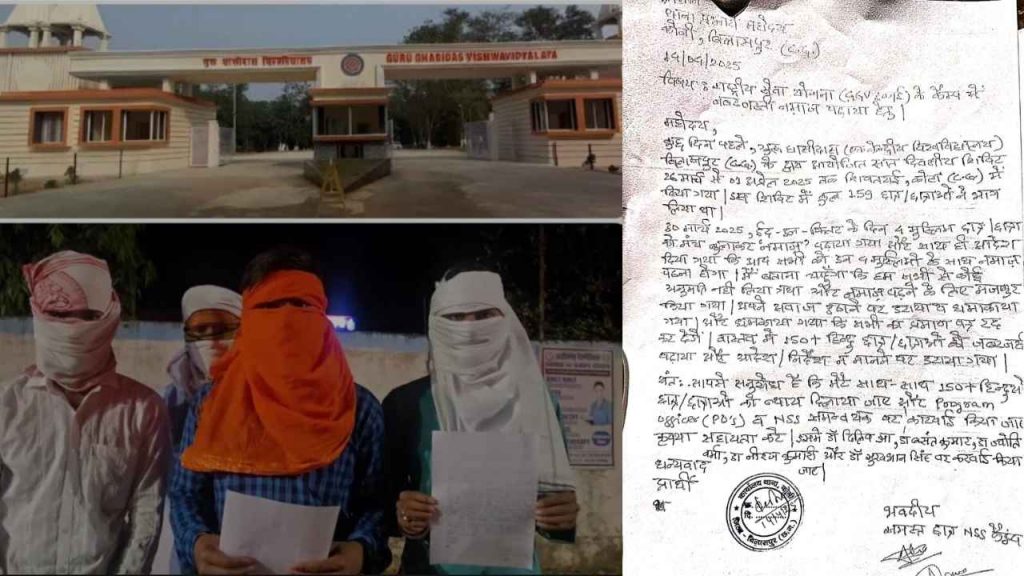 गुरु घासीदास विश्वविद्यालय
GURU GHASIDAS VISHWAVIDYALAYA
थाना प्रभारी महोदय
कोनी, बिलासपुर (C.G.)
14/04/2025
विषय : राष्ट्रीय सेवा योजना के कैम्प में
जबरदस्ती नमाज पढ़ाया हेतु।
महोदय,
कुछ दिन पहले, गुरु घासीदास
बिलासपुर (C.G.) के द्वारा आयोजित सात दिवसीय शिविर
26 मार्च से 01 अप्रैल 2025 तक शिवतराई, कोटा (C.G.) में
किया गया। इस शिविर में कुल 159 छात्र/छात्राओं ने भाग
लिया था।
30 मार्च 2025, ईद-उल-फितर के दिन 4 मुस्लिम छात्र/छात्रा
को मंच बुलाकर नमाज पढ़ाया गया और साथ ही आदेश
दिया गया कि आप सभी को इन 4 मुस्लिमो के साथ नमाज
पढ़ना होगा। मैं बताना चाहूँगा कि हम सभी से कोई
अनुमति नहीं लिया गया और नमाज पढ़ने के लिए मजबूर
किया गया। अपने आवाज उठाने पर डराया व धमकाया
गया। और धमकाया गया कि सभी का प्रमाण पत्र रद्द
कर देंगे। वास्तव में 150+ हिन्दू छात्र/छात्राओं को जबरजस्ती
पढ़ाया और आदेश/निर्देश न मानने पर डराया गया।
अतः आपसे अनुरोध है कि मेरे साथ-साथ 150+ हिन्दुओं
छात्र/छात्राओं को न्याय दिलाया जाए और Program
Officer (PO's) व NSS समन्वयक पर कार्यवाही किया जाए
कृपया सहायता करें। इसमें डॉ दिलीप झा, डॉ बसंत कुमार, डॉ ज्योति
वर्मा, डॉ नीरज कुमारी और डॉ सूर्यभान सिंह पर कार्यवाही किया
जाए।
धन्यवाद
प्रार्थी
भवदीय
समस्त छात्र NSS कैंप